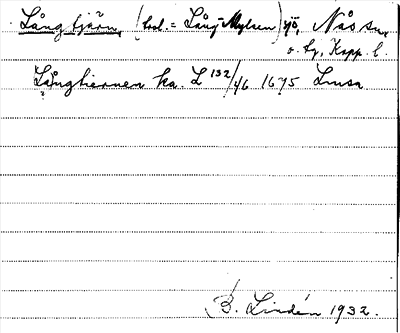 Långtjärn, (bel. = Lång-Mylsen) sjö, Nås sn,
o. tg, Kopp. l.
Långtiernen ka. L 132/46 1675 Lmsa
B. Lindén 1932.